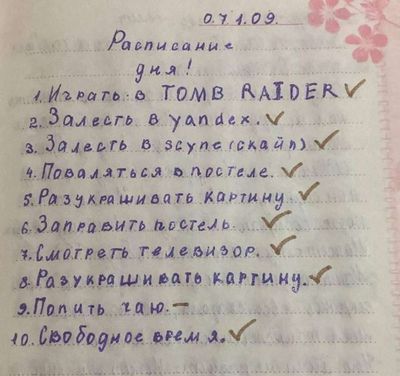 07.1.09.
Расписание
дня!
1. Играть в TOMB RAIDER ✓
2. Залесть в yandex. ✓
3. Залесть в scype (скайп) ✓
4. Поваляться в постеле. ✓
5. Разукрашивать картину. ✓
6. Заправить постель. ✓
7. Смотреть телевизор. ✓
8. Разукрашивать картину. ✓
9. Попить чаю. –
10. Свободное время. ✓